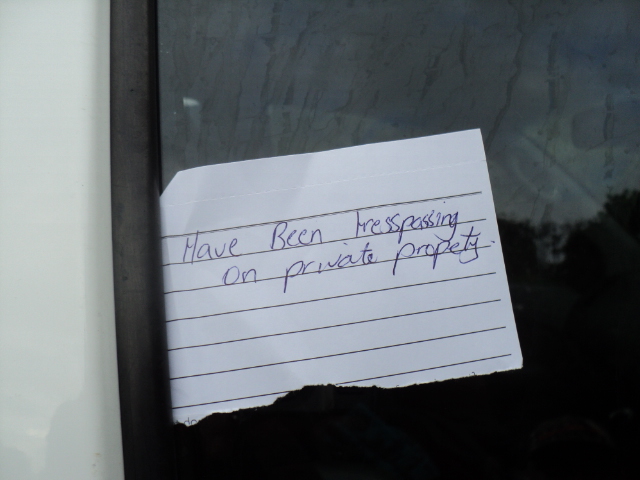 Have Been tresspassing
on private propety.